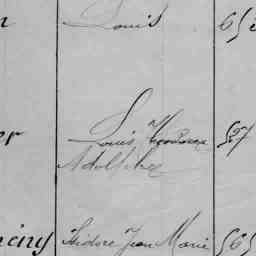 n Louis 65
er Louis Théodore 57
Adolphe
Isidore Jean Marie 56